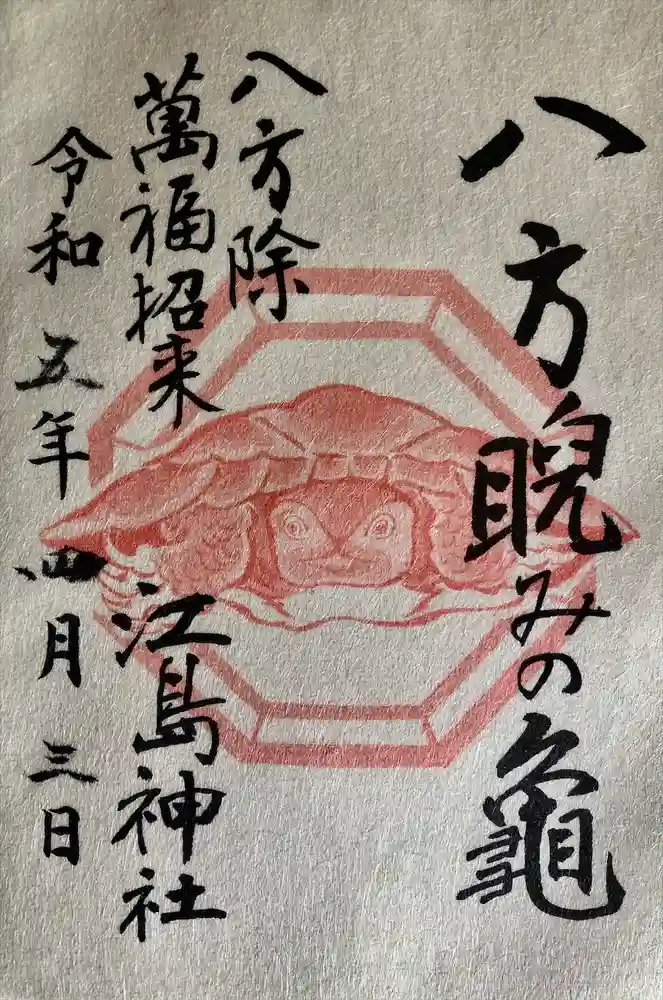 八方睨みの龜
八方除
萬福招来
江島神社
令和五年四月三日